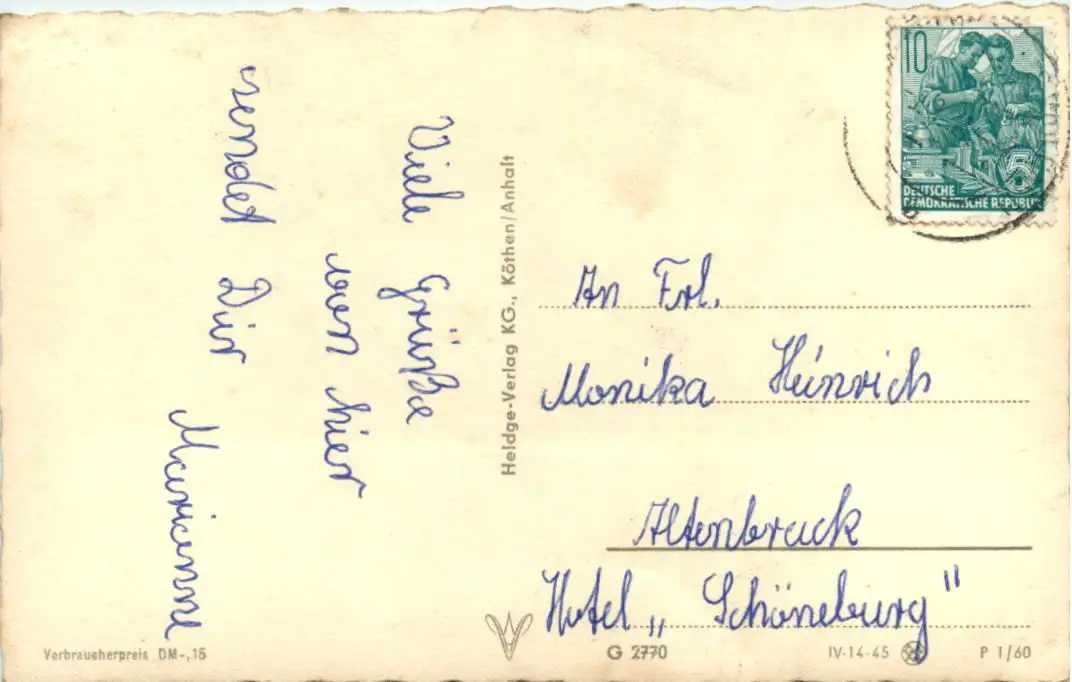 Viele Grüße
von hier
sendet Dir
Marianne
Heldge-Verlag KG., Köthen/Anhalt
10
5
DEUTSCHE
DEMOKRATISCHE REPUBLIK
An Frl.
Monika Heinrich
Altenbrack
Hotel „Schöneburg"
Verbraucherpreis DM -,15
G 2770
IV-14-45
P 1/60